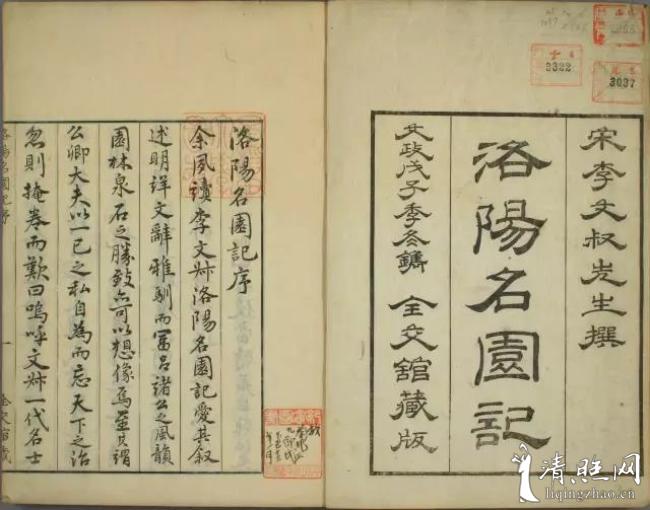 宋李文叔先生撰
洛陽名園記
文政戊子季冬鐫 全交館藏版
2322
3037
洛陽名園記序
余夙讀李文叔洛陽名園記愛其叙
述明詳文辭雅馴而冨呂諸公之風韻
園林泉石之勝致亦可以想像焉並其謂
公卿大夫以一己之私自為而忘天下之治
忽則掩卷而歎曰嗚呼文叔一代名士
洛陽名園記序
一
全交館藏
清照网
liqingzhao.cn